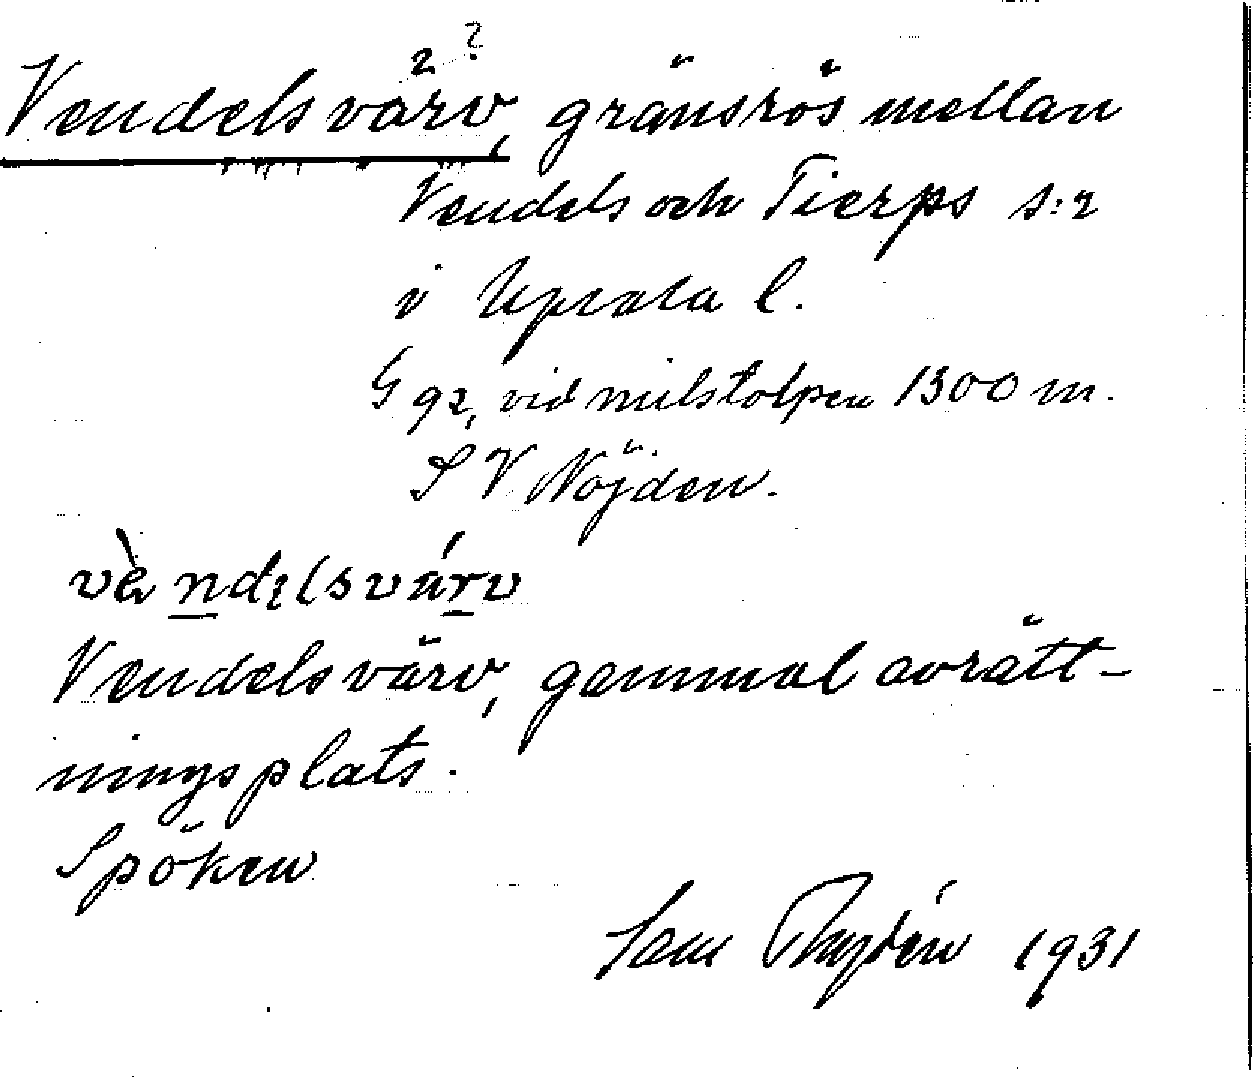 2 ?
Vendelsvärv, gränsrös mellan
Vendels och Tierps s:r
i Upsala l.
G 92, vid milstolpen 1300 m.
S V Nöjden.
vèndelsvárv
Vendelsvärv, gammal avrätt-
ningsplats.
Spöken
1931